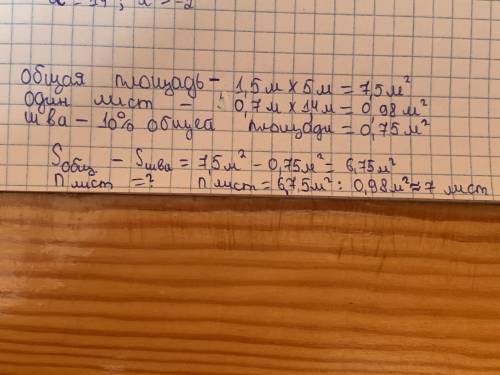 общая площадь - 1,5 м × 5 м = 7,5 м²
один лист - 0,7 м × 1,4 м = 0,98 м²
шва - 10% общей площади = 0,75 м²
Sобщ - Sшва = 7,5 м² - 0,75 м² = 6,75 м²
n лист = ? n лист = 6,75 м² : 0,98 м² ≈ 7 лист